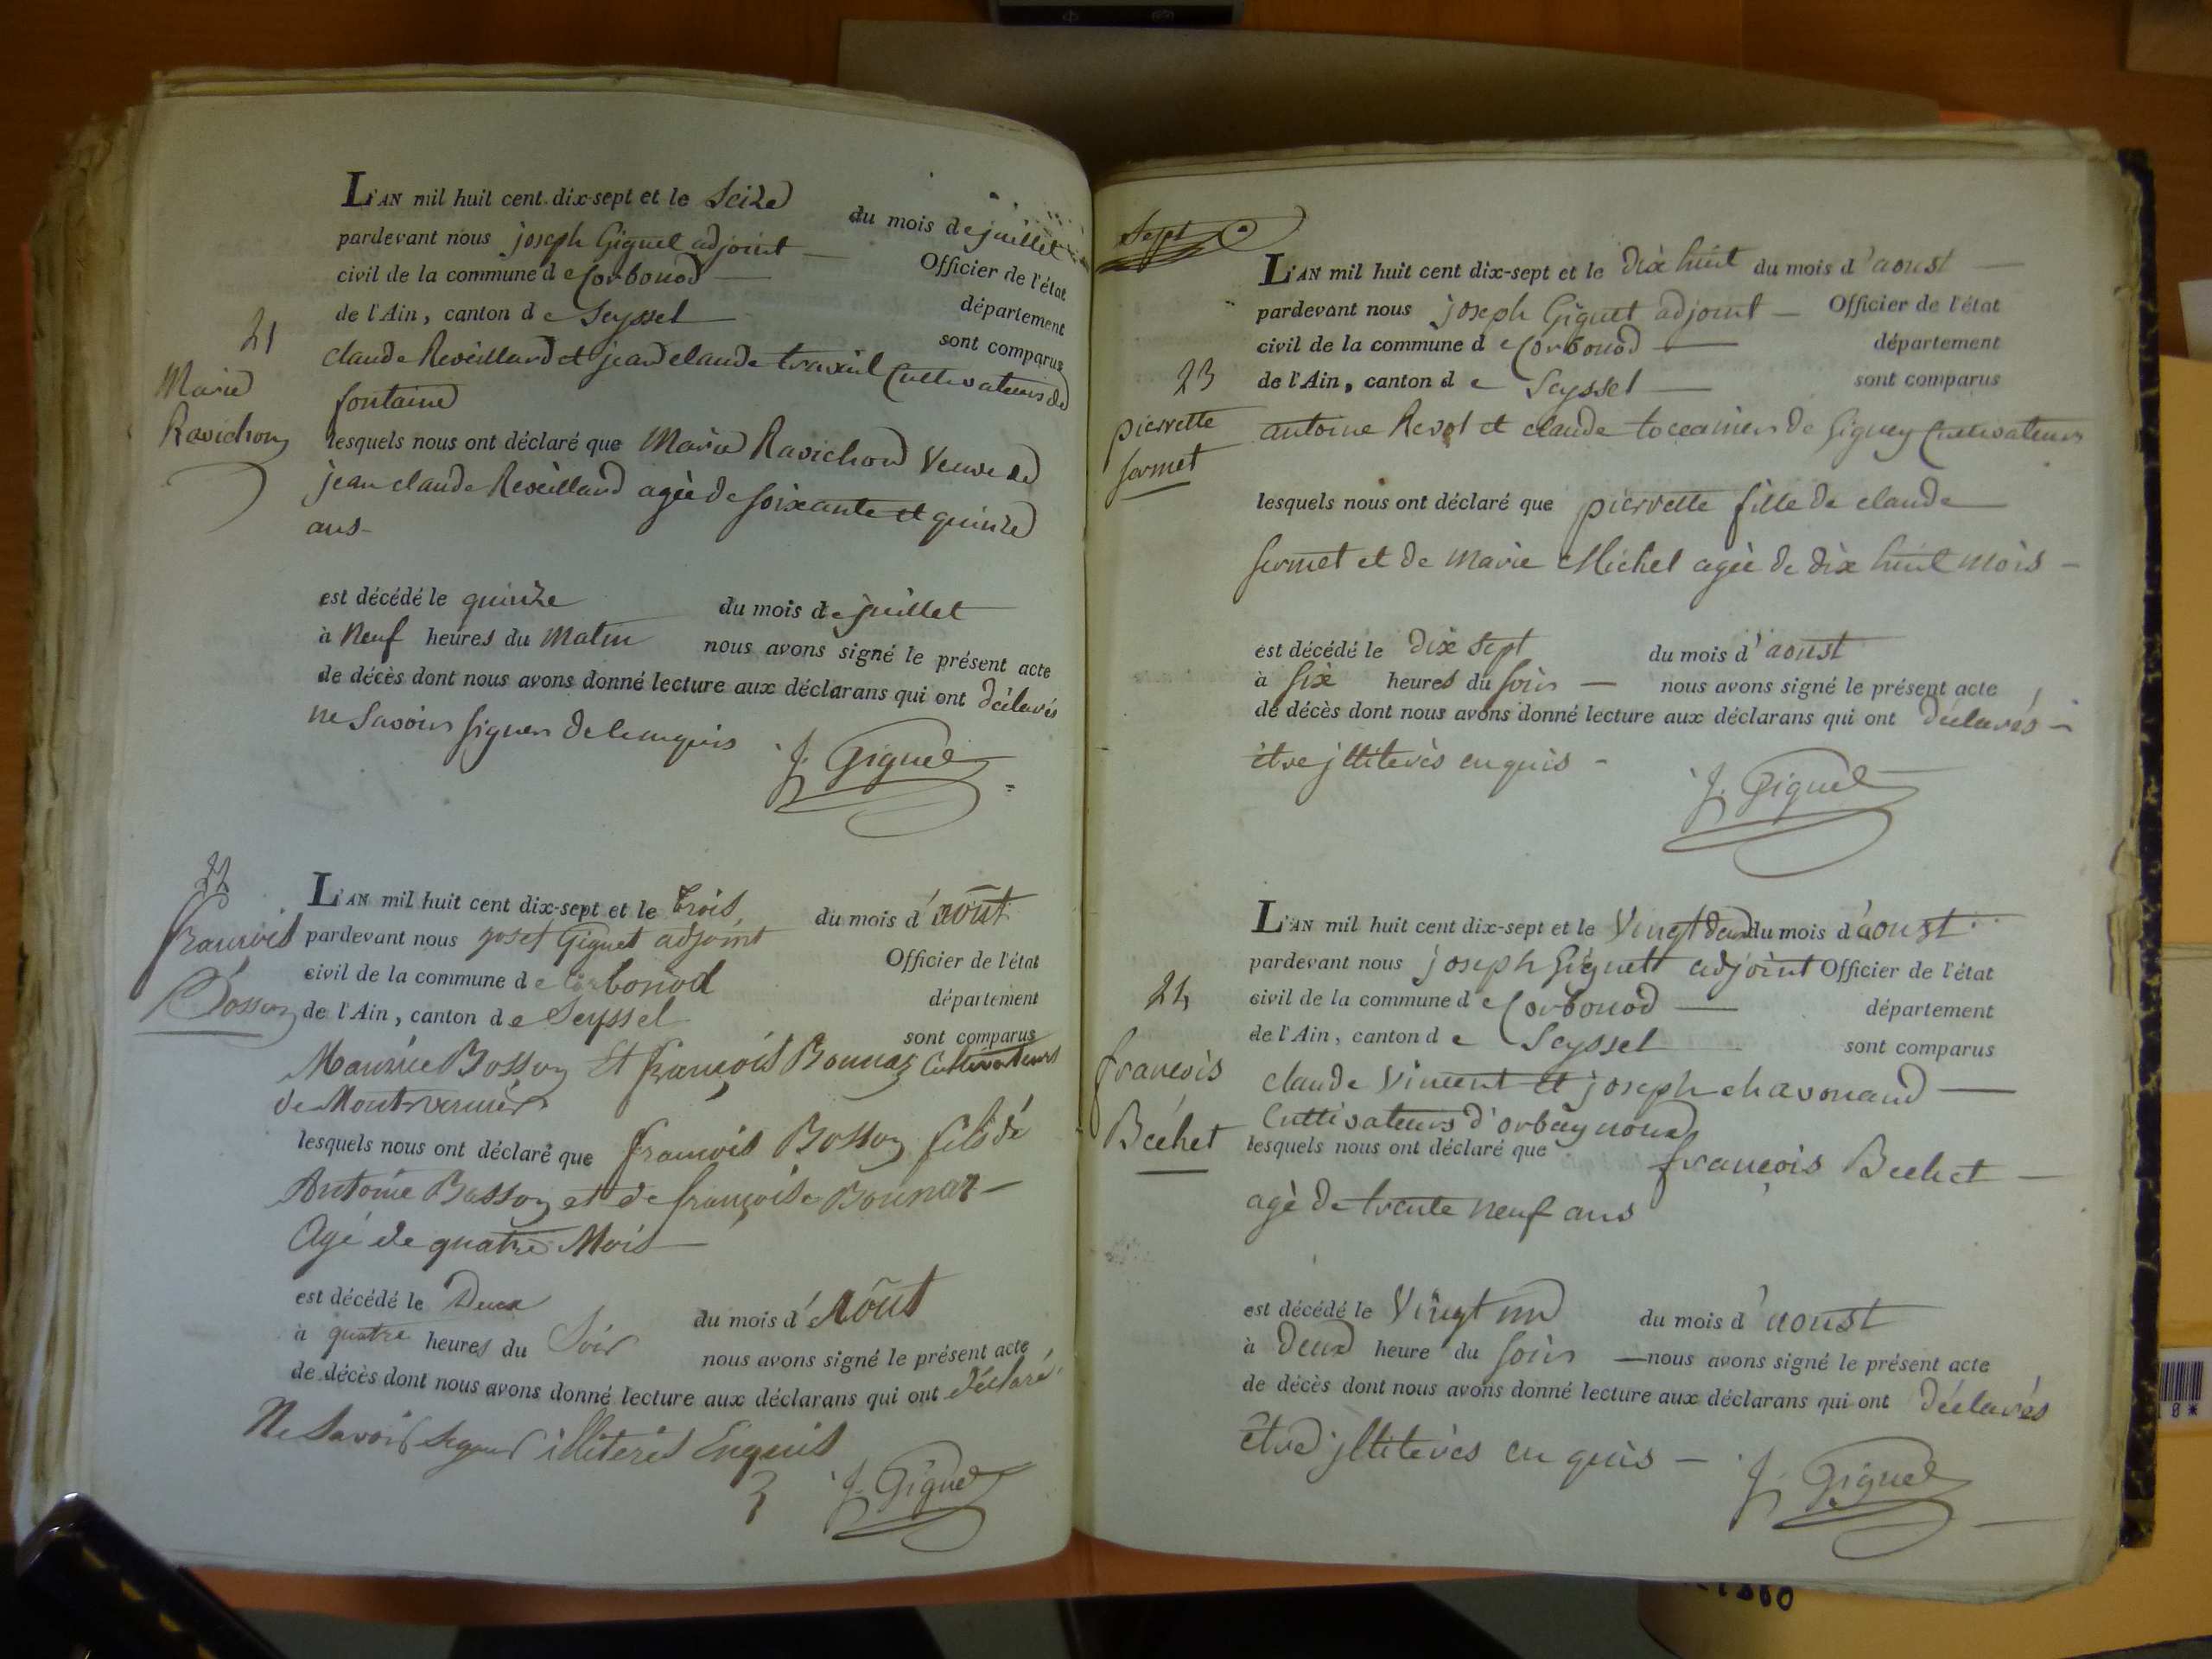 L'AN mil huit cent dix-sept et le Seize du mois de juillet
pardevant nous joseph Giguet adjoint — Officier de l'état
civil de la commune de Corbonod — département
de l'Ain, canton de Seyssel — sont comparus
claude Reveillard et jean claude travail Cultivateurs de
fontaine
21
Marie
Ravichon
lesquels nous ont déclaré que Marie Ravichon Veuve de
jean claude Reveillard agèe de soixante et quinze
ans —
est décédé le quinze du mois de juillet
à Neuf heures du Matin nous avons signé le présent acte
de décès dont nous avons donné lecture aux déclarans qui ont déclarés
ne Savoir signer de le enquis
J. Giguet
22
françois
Bosson
L'AN mil huit cent dix-sept et le trois du mois d'août
pardevant nous josef Giguet adjoint Officier de l'état
civil de la commune de Corbonod département
de l'Ain, canton de Seyssel sont comparus
Maurice Bosson Et françois Bonnaz Cultivateurs
de
lesquels nous ont déclaré que françois Bosson fils de
Antoine Bosson et de françoise Bonnaz —
Agé de quatre Mois —
est décédé le Deux du mois d'Août
à quatre heures du Soir nous avons signé le présent acte
de décès dont nous avons donné lecture aux déclarans qui ont déclaré
Ne Savoir signer illiterés Enquis
J. Giguet
Sept
L'AN mil huit cent dix-sept et le dix huit du mois d'aoust —
pardevant nous joseph Giguet adjoint — Officier de l'état
civil de la commune de Corbonod — département
de l'Ain, canton de Seyssel — sont comparus
23
pierrette
fermet
antoine Revol et claude de Gignez Cultivateurs
lesquels nous ont déclaré que pierrette fille de claude
fermet et de Marie Michel agèe de dix huit mois —
est décédé le dix sept du mois d'aoust
à six heures du soir — nous avons signé le présent acte
de décès dont nous avons donné lecture aux déclarans qui ont déclarés —
être jlliterès enquis —
J. Giguet
L'AN mil huit cent dix-sept et le Vingt deux du mois d'aoust
pardevant nous joseph Giguet adjoint Officier de l'état
civil de la commune de Corbonod — département
de l'Ain, canton de Seyssel — sont comparus
24
françois
Béchet
claude Vincent et joseph chavonand —
Cultivateurs d'orbagnoux
lesquels nous ont déclaré que françois Bechet —
agè de trente neuf ans
est décédé le Vingt un du mois d'aoust
à Deux heure du soir — nous avons signé le présent acte
de décès dont nous avons donné lecture aux déclarans qui ont déclarés
être jlliterès enquis —
J. Giguet